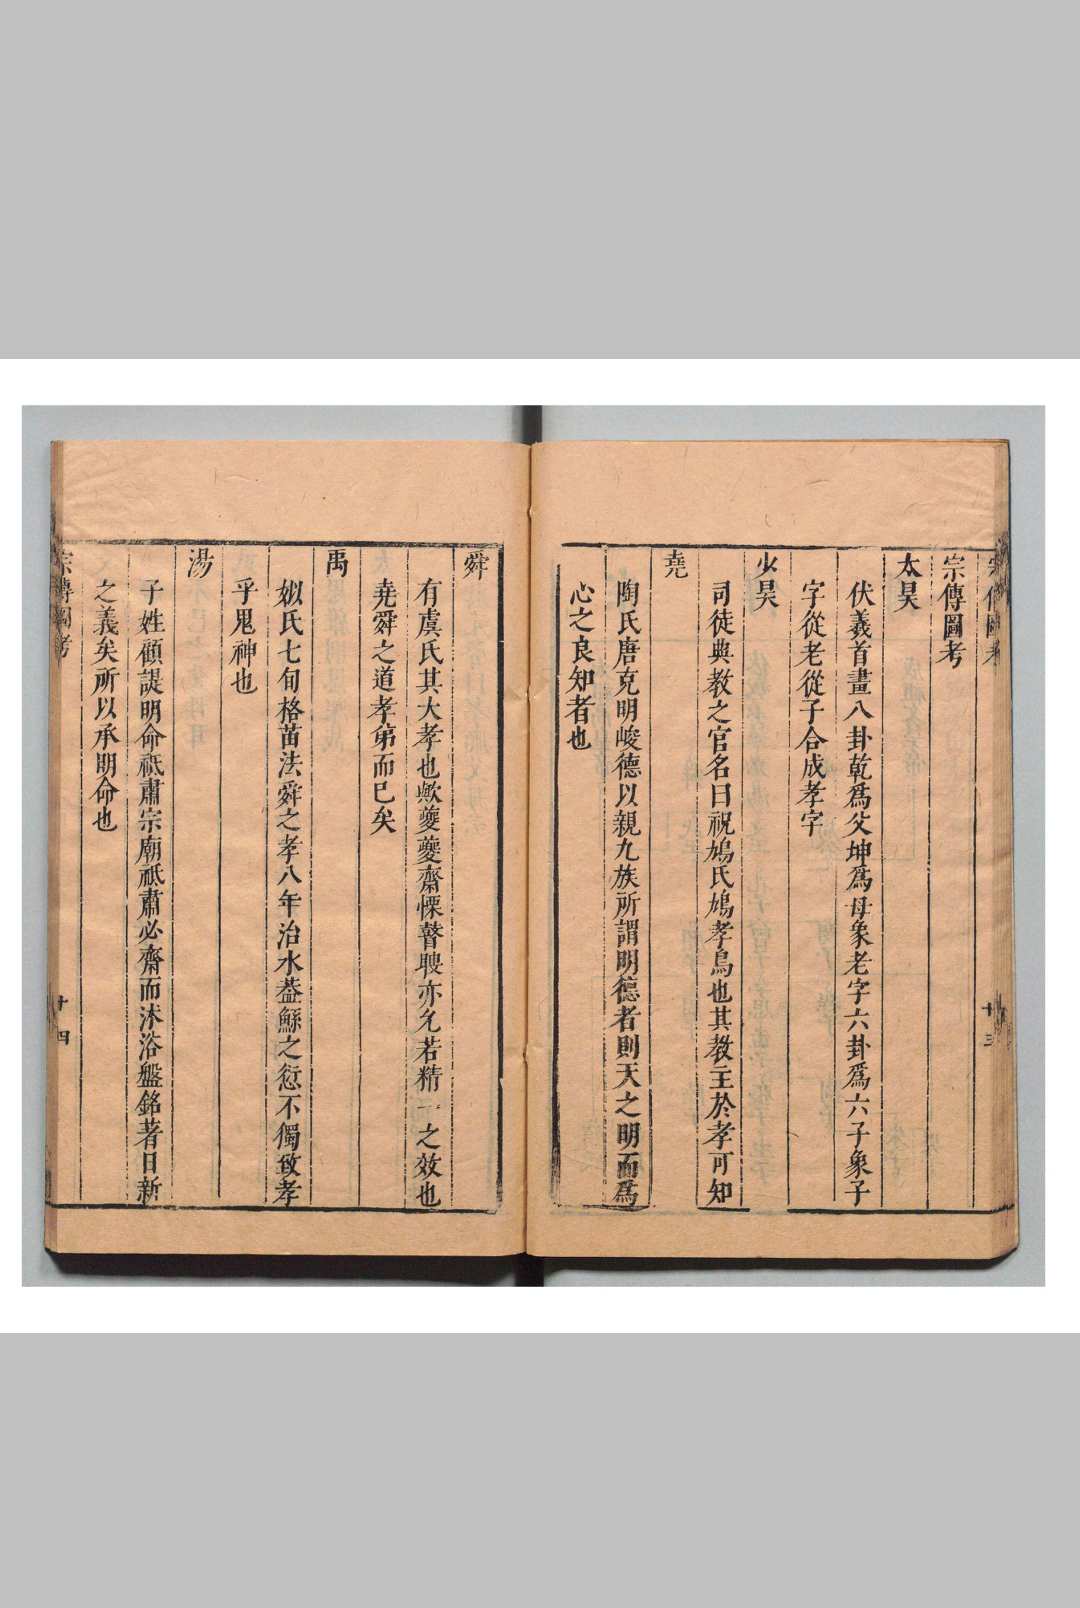 宗傳圖考
十三
宗傳圖考
太昊
伏羲首畫八卦乾爲父坤爲母象老字六卦爲六子象子
字從老從子合成孝字
少昊
司徒典教之官名曰祝鳩氏鳩孝鳥也其教主於孝可知
堯
陶氏唐克明峻德以親九族所謂明德者則天之明而爲
心之良知者也
舜
有虞氏其大孝也歟夔夔齋慄瞽聣亦允若精一之效也
堯舜之道孝弟而已矣
禹
姒氏七旬格苗法舜之孝八年治水葢鯀之愆不獨致孝
乎鬼神也
湯
子姓顧諟明命祗肅宗廟祗肅必齋而沐浴盤銘著日新
之義矣所以承明命也
宗傳圖考
十四